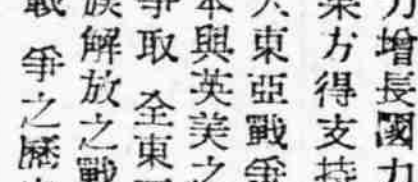 力增長國力
業方得支持
大東亞戰爭
本與英美之
爭取全東
族解放之戰
戰爭之歷